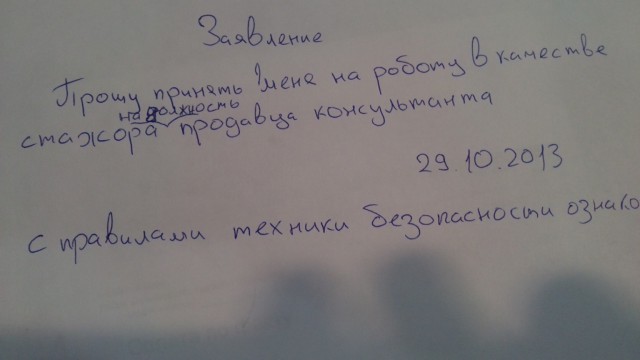 Заявление
Прошу принять меня на роботу в качестве
на должность
стажора продавца консультанта
29.10.2013
с правилами техники безопасности ознако